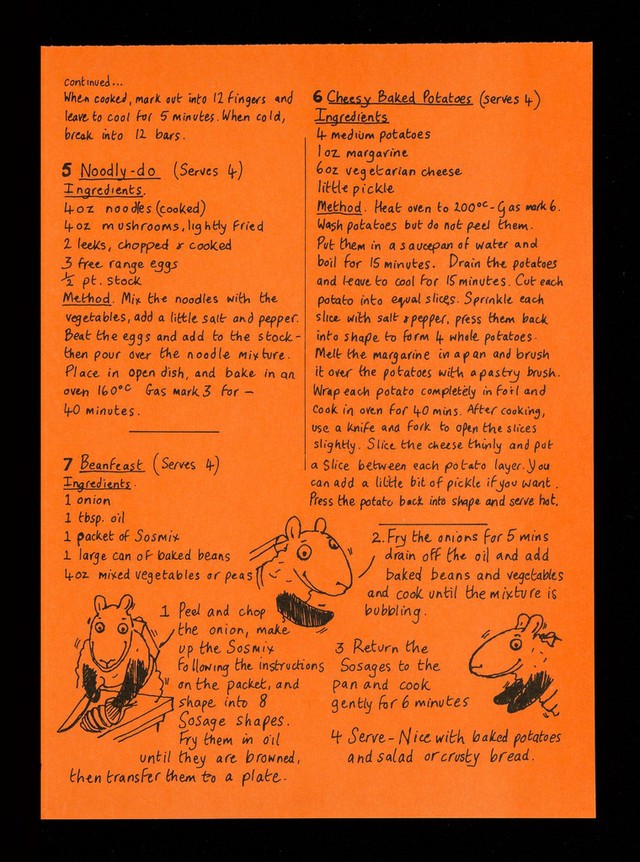 continued...
When cooked, mark out into 12 fingers and
leave to cool for 5 minutes. When cold,
break into 12 bars.
5 Noodly-do (Serves 4)
Ingredients.
4oz noodles (cooked)
4oz mushrooms, lightly fried
2 leeks, chopped & cooked
3 free range eggs
½ pt. stock
Method. Mix the noodles with the
vegetables, add a little salt and pepper.
Beat the eggs and add to the stock -
then pour over the noodle mixture.
Place in open dish, and bake in an
oven 160°C Gas mark 3 for –
40 minutes.
7 Beanfeast (Serves 4)
Ingredients.
1 onion
1 tbsp. oil
1 packet of Sosmix
1 large can of baked beans
4oz mixed vegetables or peas
1 Peel and chop
the onion, make
up the Sosmix
following the instructions
on the packet, and
shape into 8
Sosage shapes.
Fry them in oil
until they are browned,
then transfer them to a plate.
6 Cheesy Baked Potatoes (serves 4)
Ingredients
4 medium potatoes
1oz margarine
6oz vegetarian cheese
little pickle
Method. Heat oven to 200°C - Gas mark 6.
Wash potatoes but do not peel them.
Put them in a saucepan of water and
boil for 15 minutes. Drain the potatoes
and leave to cool for 15 minutes. Cut each
potato into equal slices. Sprinkle each
slice with salt & pepper, press them back
into shape to form 4 whole potatoes.
Melt the margarine in a pan and brush
it over the potatoes with a pastry brush.
Wrap each potato completely in foil and
cook in oven for 40 mins. After cooking,
use a knife and fork to open the slices
slightly. Slice the cheese thinly and put
a slice between each potato layer. You
can add a little bit of pickle if you want.
Press the potato back into shape and serve hot.
2. Fry the onions for 5 mins
drain off the oil and add
baked beans and vegetables
and cook until the mixture is
bubbling.
3 Return the
Sosages to the
pan and cook
gently for 6 minutes
4 Serve - Nice with baked potatoes
and salad or crusty bread.